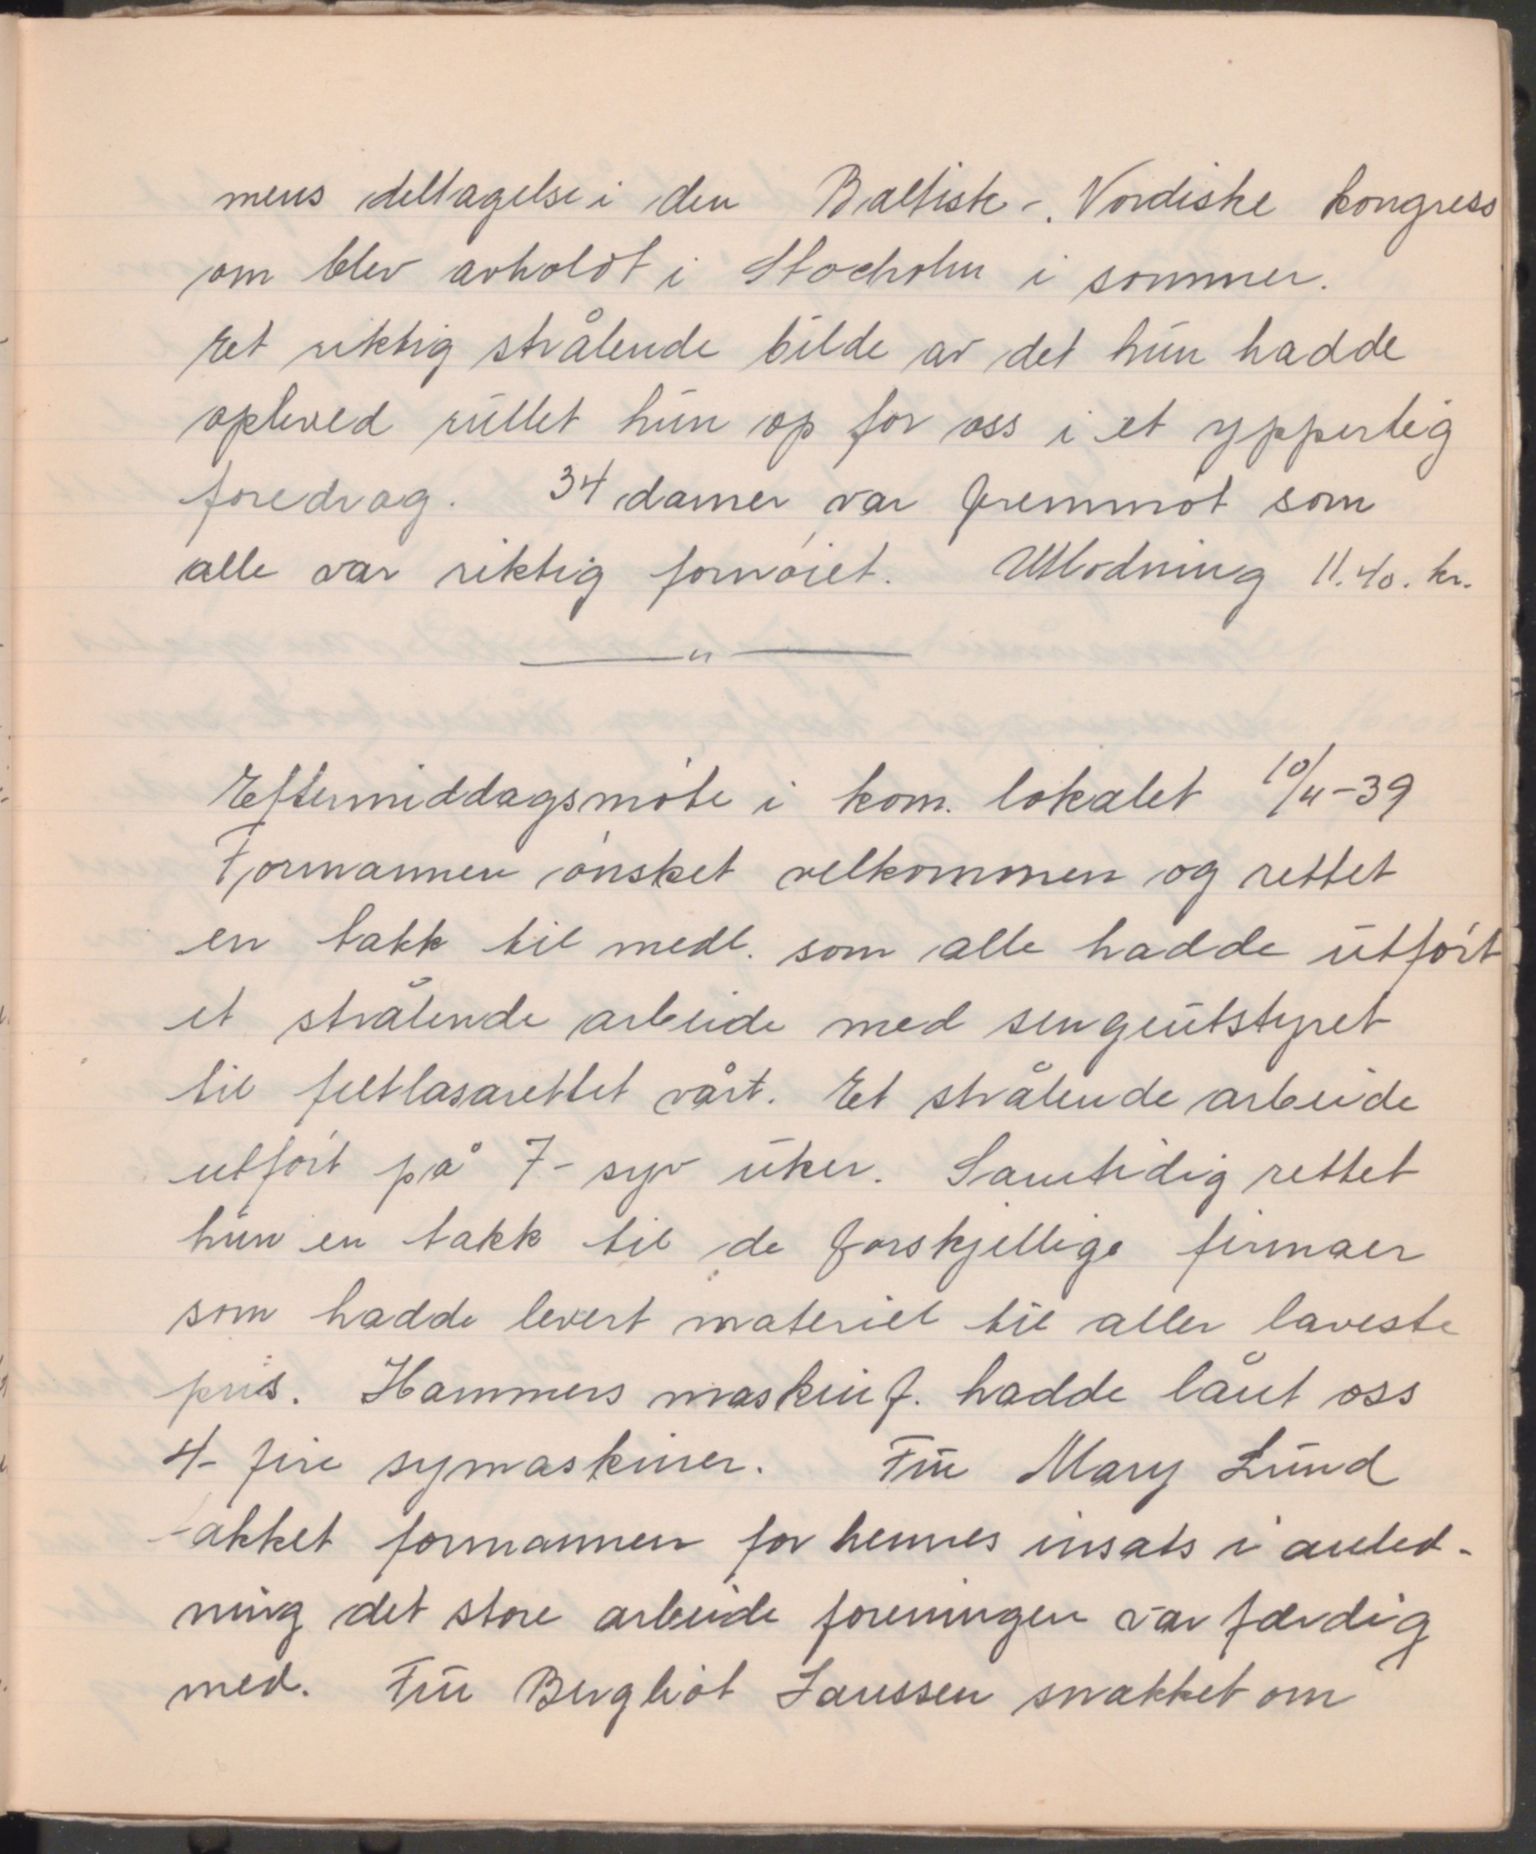 mens deltagelse i den Baltisk-Nordiske kongress
om blev avholdt i Stocholm i sommer.
Et riktig strålende bilde av det hun hadde
opleved rullet hun op for oss i et ypperlig
foredrag. 34 damer var fremmøt som
alle var riktig fornøiet. Utlodning 11.40. kr.
— " —
Eftermiddagsmøte i kom. lokalet 10/4-39
Formannen ønsket velkommen og rettet
en takk til medl. som alle hadde utført
et strålende arbeide med sengeutstyret
til feltlasarettet vårt. Et strålende arbeide
utført på 7- syv uker. Samtidig rettet
hun en takk til de forskjellige firmaer
som hadde levert materiel til aller laveste
pris. Hammers maskinf. hadde lånt oss
4- fire symaskiner. Fru Mary Lund
takket formannen for hennes insats i anled-
ning det store arbeide foreningen var færdig
med. Fru Bergliot Larssen snakket om